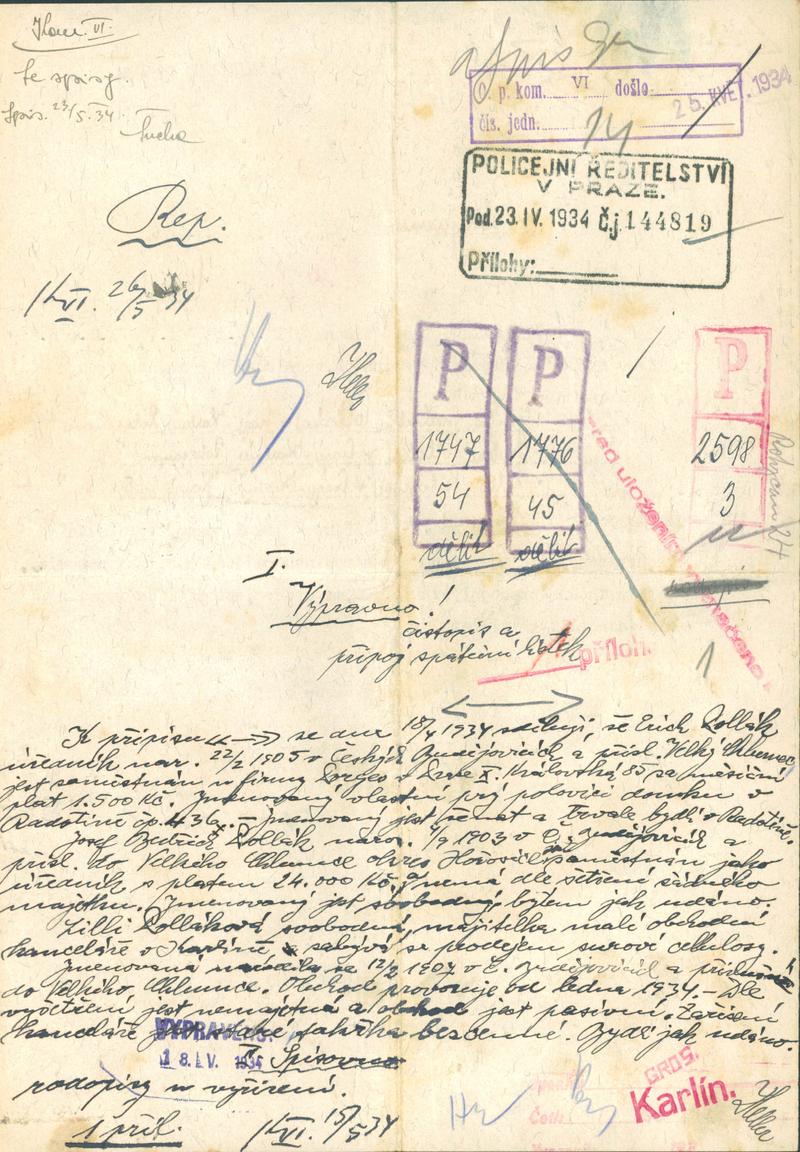 Kom. VI.
Spis. 23/5.34
Rep.
K VI. 26/5 34
p. kom. VI došlo
25. KVĚT. 1934
čís. jedn. 14
POLICEJNÍ ŘEDITELSTVÍ
V PRAZE.
Pod. 23. IV. 1934 Č.j. 144819
Přílohy:
P P P
1747 1776 2598
54 45 3
dělit dělit
I.
Výpravno!
čistopis a
připoj zpáteční lístek
1 příloh
1
K přípisu ze dne 18/4 1934 sděluji, že Erich Pollák
úředník nar. 22/2 1905 v Českých Budějovicích a přísl. Velký Chlumec
jest zaměstnán u firmy v Praze X. Královská 85 za měsíční
plat 1.500 Kč. Jmenovaný vlastní prý polovici domku v
Radotíně čp. 436. – Jmenovaný jest ženat a trvale bydlí v Radotíně.
Josef Bedřich Pollák naroz. 1903 v Č. Budějovicích a
přísl. do Velkého Chlumce okres Hořovice zaměstnán jako
úředník s platem 24.000 Kč, nemá dle šetření žádného
majetku. Jmenovaný jest svobodný, bytem jak udáno.
Lilli Polláková svobodná, majitelka malé obchodní
kanceláře v Karlíně zabývá se prodejem surové celulosy.
Jmenovaná narodila se 12/2 1907 v Č. Budějovicích a příslušná
do Velkého Chlumce. Obchod provozuje od ledna 1934. – Dle
vyšetření jest nemajetná a obchod jest pasivní. Zařízení
kanceláře jest také takřka bezcenné. Bydlí jak udáno.
VYPRAVENO
1 8. V. 1934
Spisovna
podpisy u vyřízení.
1 příl. K VI. 15/5 34
GROS.
Karlín.